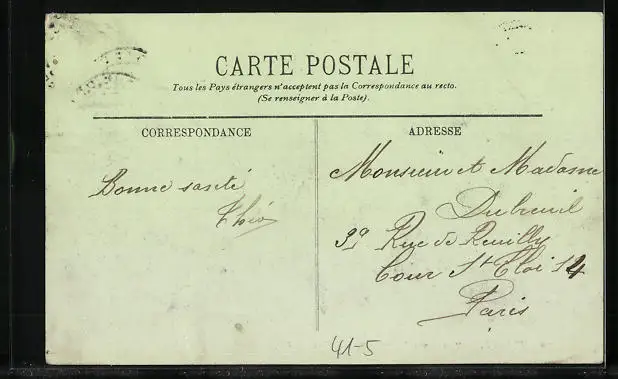 CARTE POSTALE
Tous les Pays étrangers n'acceptent pas la Correspondance au recto.
(Se renseigner à la Poste).
CORRESPONDANCE
Bonne santé
Théo
ADRESSE
Monsieur et Madame
Dubreuil
39 Rue de Reuilly
Cour St Eloi 14
Paris
41-5